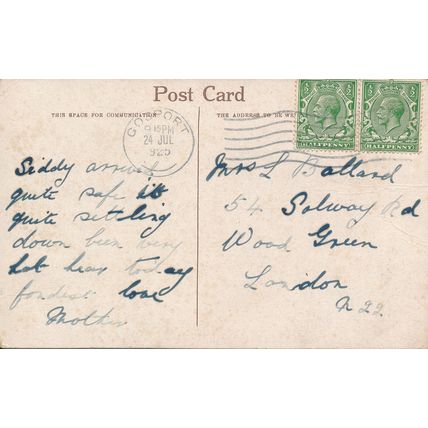 Post Card
THIS SPACE FOR COMMUNICATION
THE ADDRESS TO BE
GOSPORT
9 15PM
24 JUL
1925
HALFPENNY
HALFPENNY
Siddy arrived
quite safe is
quite settling
down been very
hot hear today
fondest love
Mother
Mrs L Ballard
54 Salway Rd
Wood Green
London
N 22